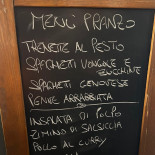 MENÙ PRANZO
TRENETTE AL PESTO
SPAGHETTI VONGOLE E
ZUCCHINE
SPAGHETTI GENOVESE
PENNE ARRABBIATA
INSALATA DI POLPO
ZIMINO DI SALSICCIA
POLLO AL CURRY